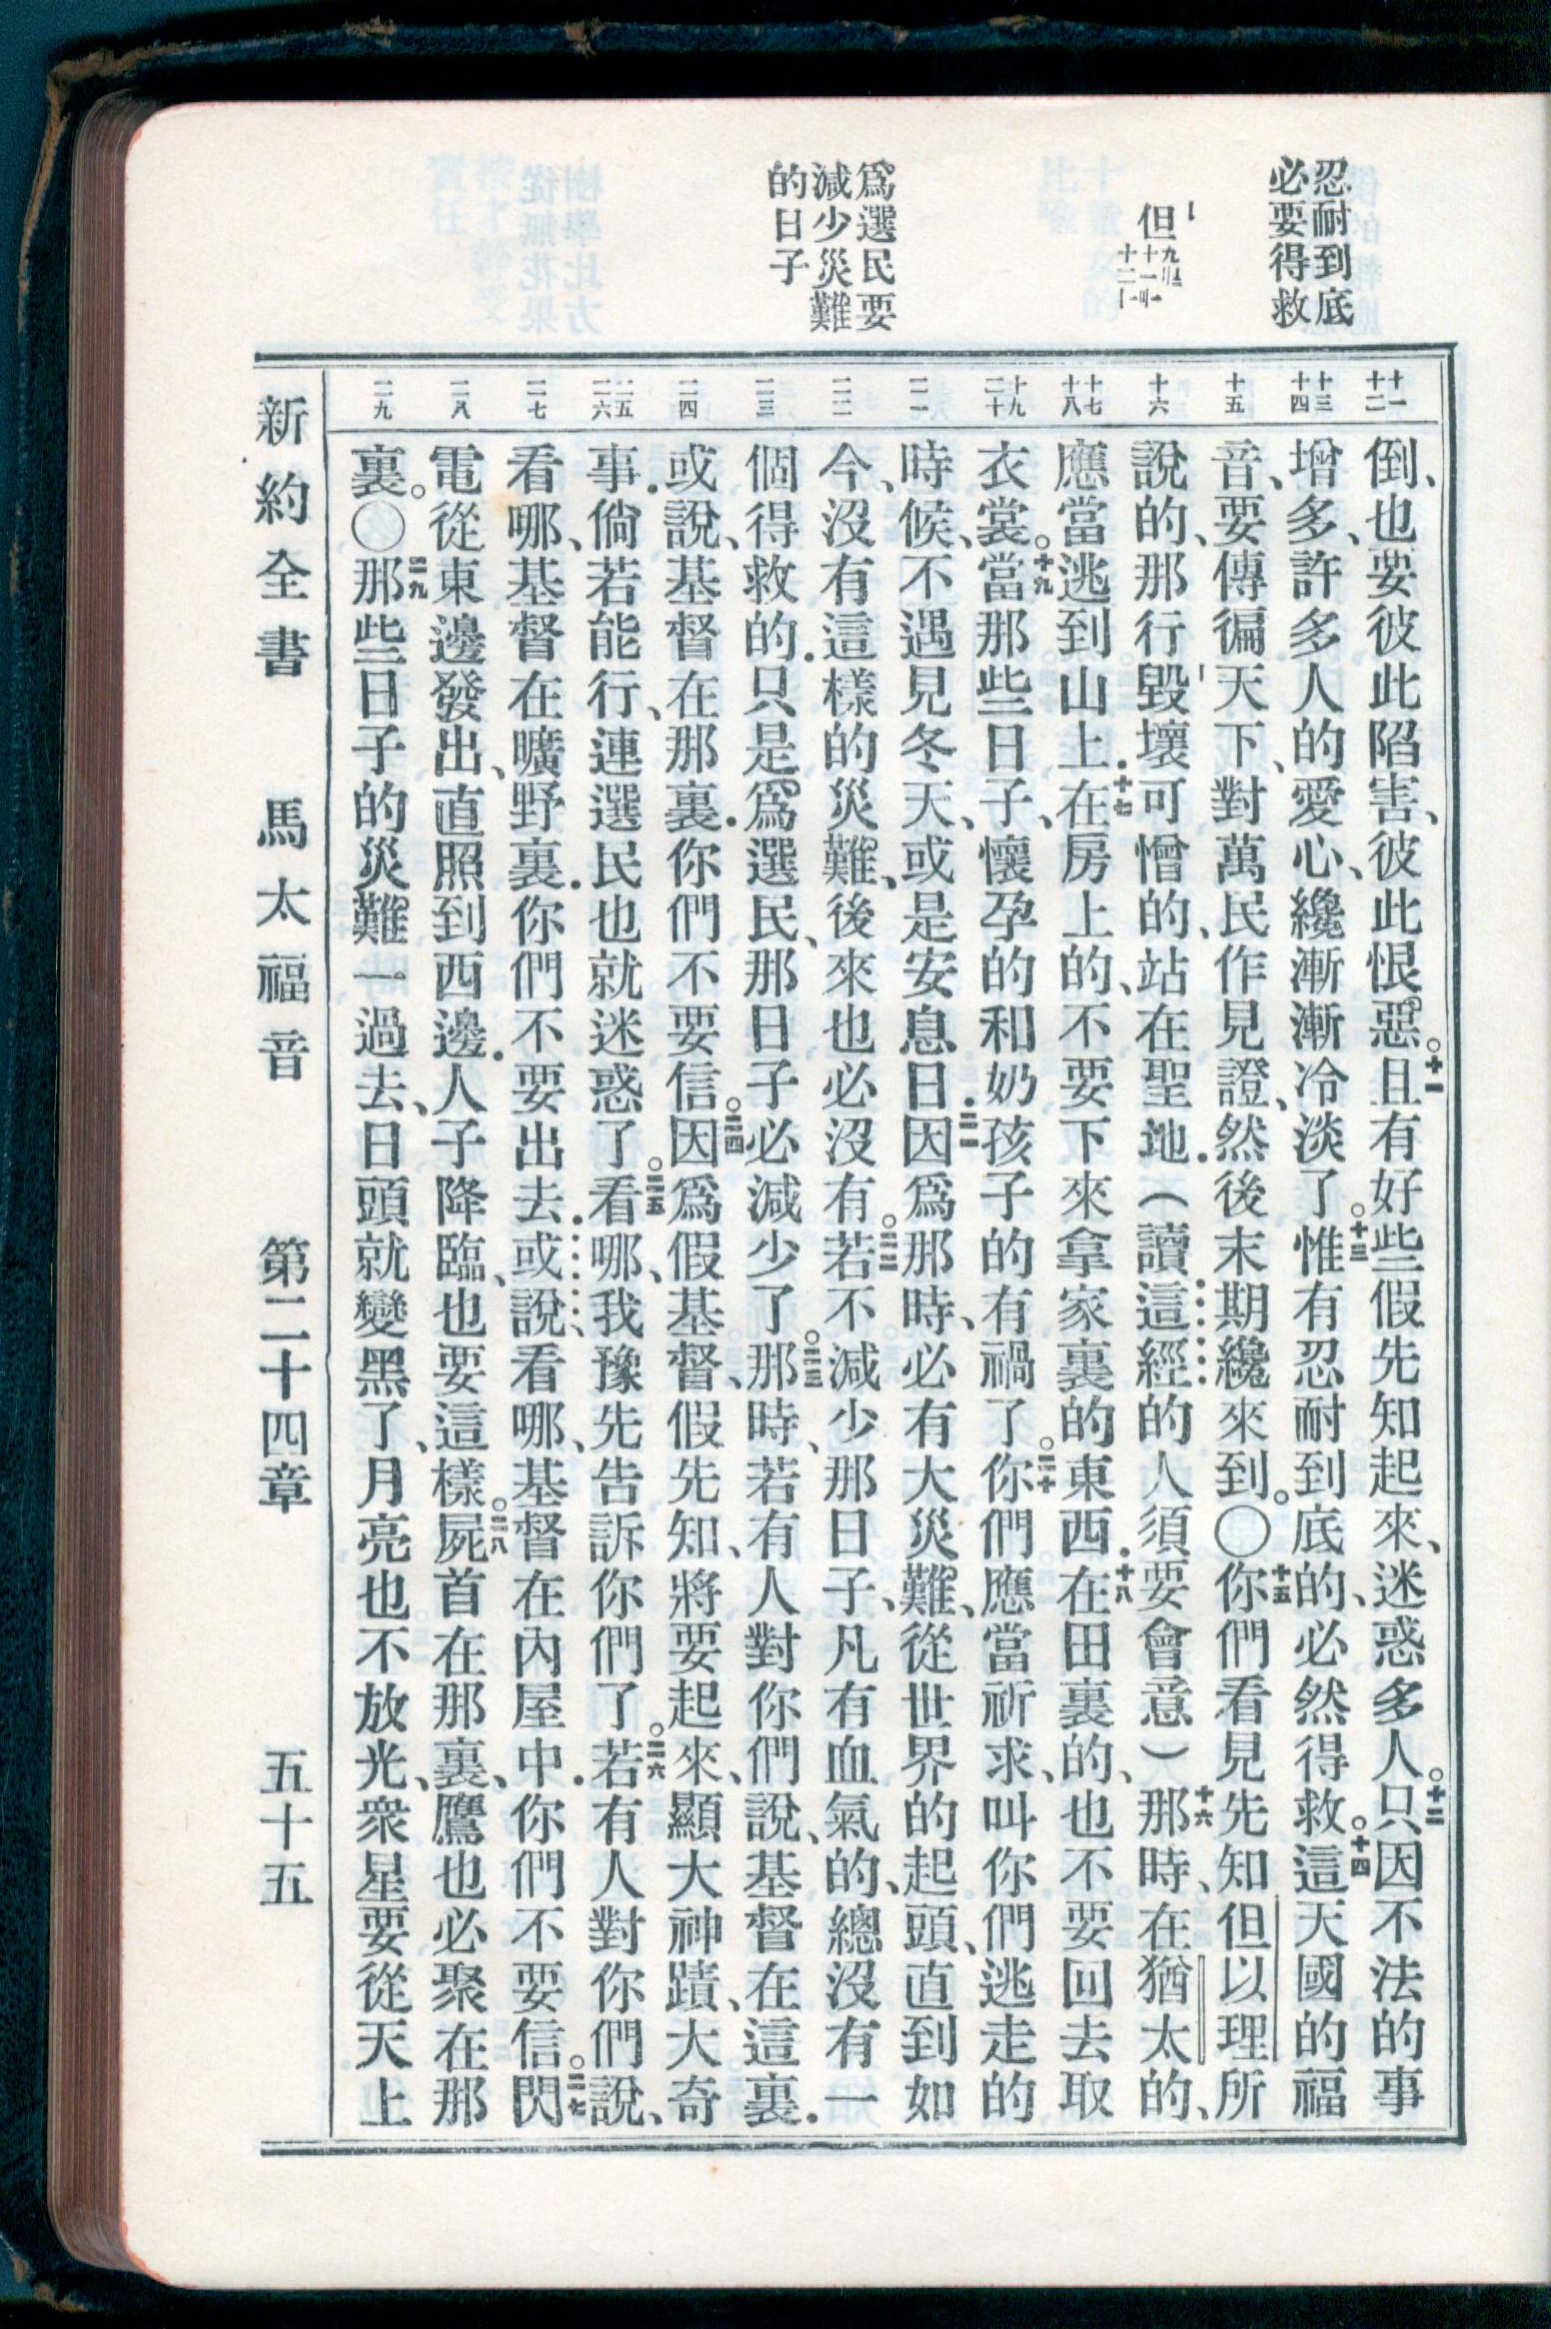 忍耐到底
必要得救
但
九 二七
十一 三一
十二 一一
爲選民要
減少災難
的日子
十一
十二
十三
十四
十五
十六
十七
十八
十九
二十
二一
二二
二三
二四
二五
二六
二七
二八
二九
倒、也要彼此陷害、彼此恨惡。十一且有好些假先知起來、迷惑多人。十二只因不法的事
增多、許多人的愛心、纔漸漸冷淡了。十三惟有忍耐到底的、必然得救。十四這天國的福
音、要傳徧天下、對萬民作見證、然後末期纔來到。○十五你們看見先知但以理所
說的、那行毀壞可憎的、站在聖地．（讀這經的人須要會意）十六那時、在猶太的、
應當逃到山上．十七在房上的、不要下來拿家裏的東西．十八在田裏的、也不要回去取
衣裳。十九當那些日子、懷孕的和奶孩子的有禍了。二十你們應當祈求、叫你們逃走的
時候、不遇見冬天、或是安息日．二一因爲那時、必有大災難、從世界的起頭、直到如
今、沒有這樣的災難、後來也必沒有。二二若不減少那日子、凡有血氣的、總沒有一
個得救的．只是爲選民、那日子必減少了。二三那時、若有人對你們說、基督在這裏．
或說、基督在那裏．你們不要信。二四因爲假基督、假先知、將要起來、顯大神蹟、大奇
事．倘若能行、連選民也就迷惑了。二五看哪、我豫先告訴你們了。二六若有人對你們說、
看哪、基督在曠野裏．你們不要出去．或說、看哪、基督在內屋中．你們不要信。二七閃
電從東邊發出、直照到西邊．人子降臨、也要這樣。二八屍首在那裏、鷹也必聚在那
裏。○二九那些日子的災難一過去、日頭就變黑了、月亮也不放光、衆星要從天上
新約全書 馬太福音 第二十四章 五十五